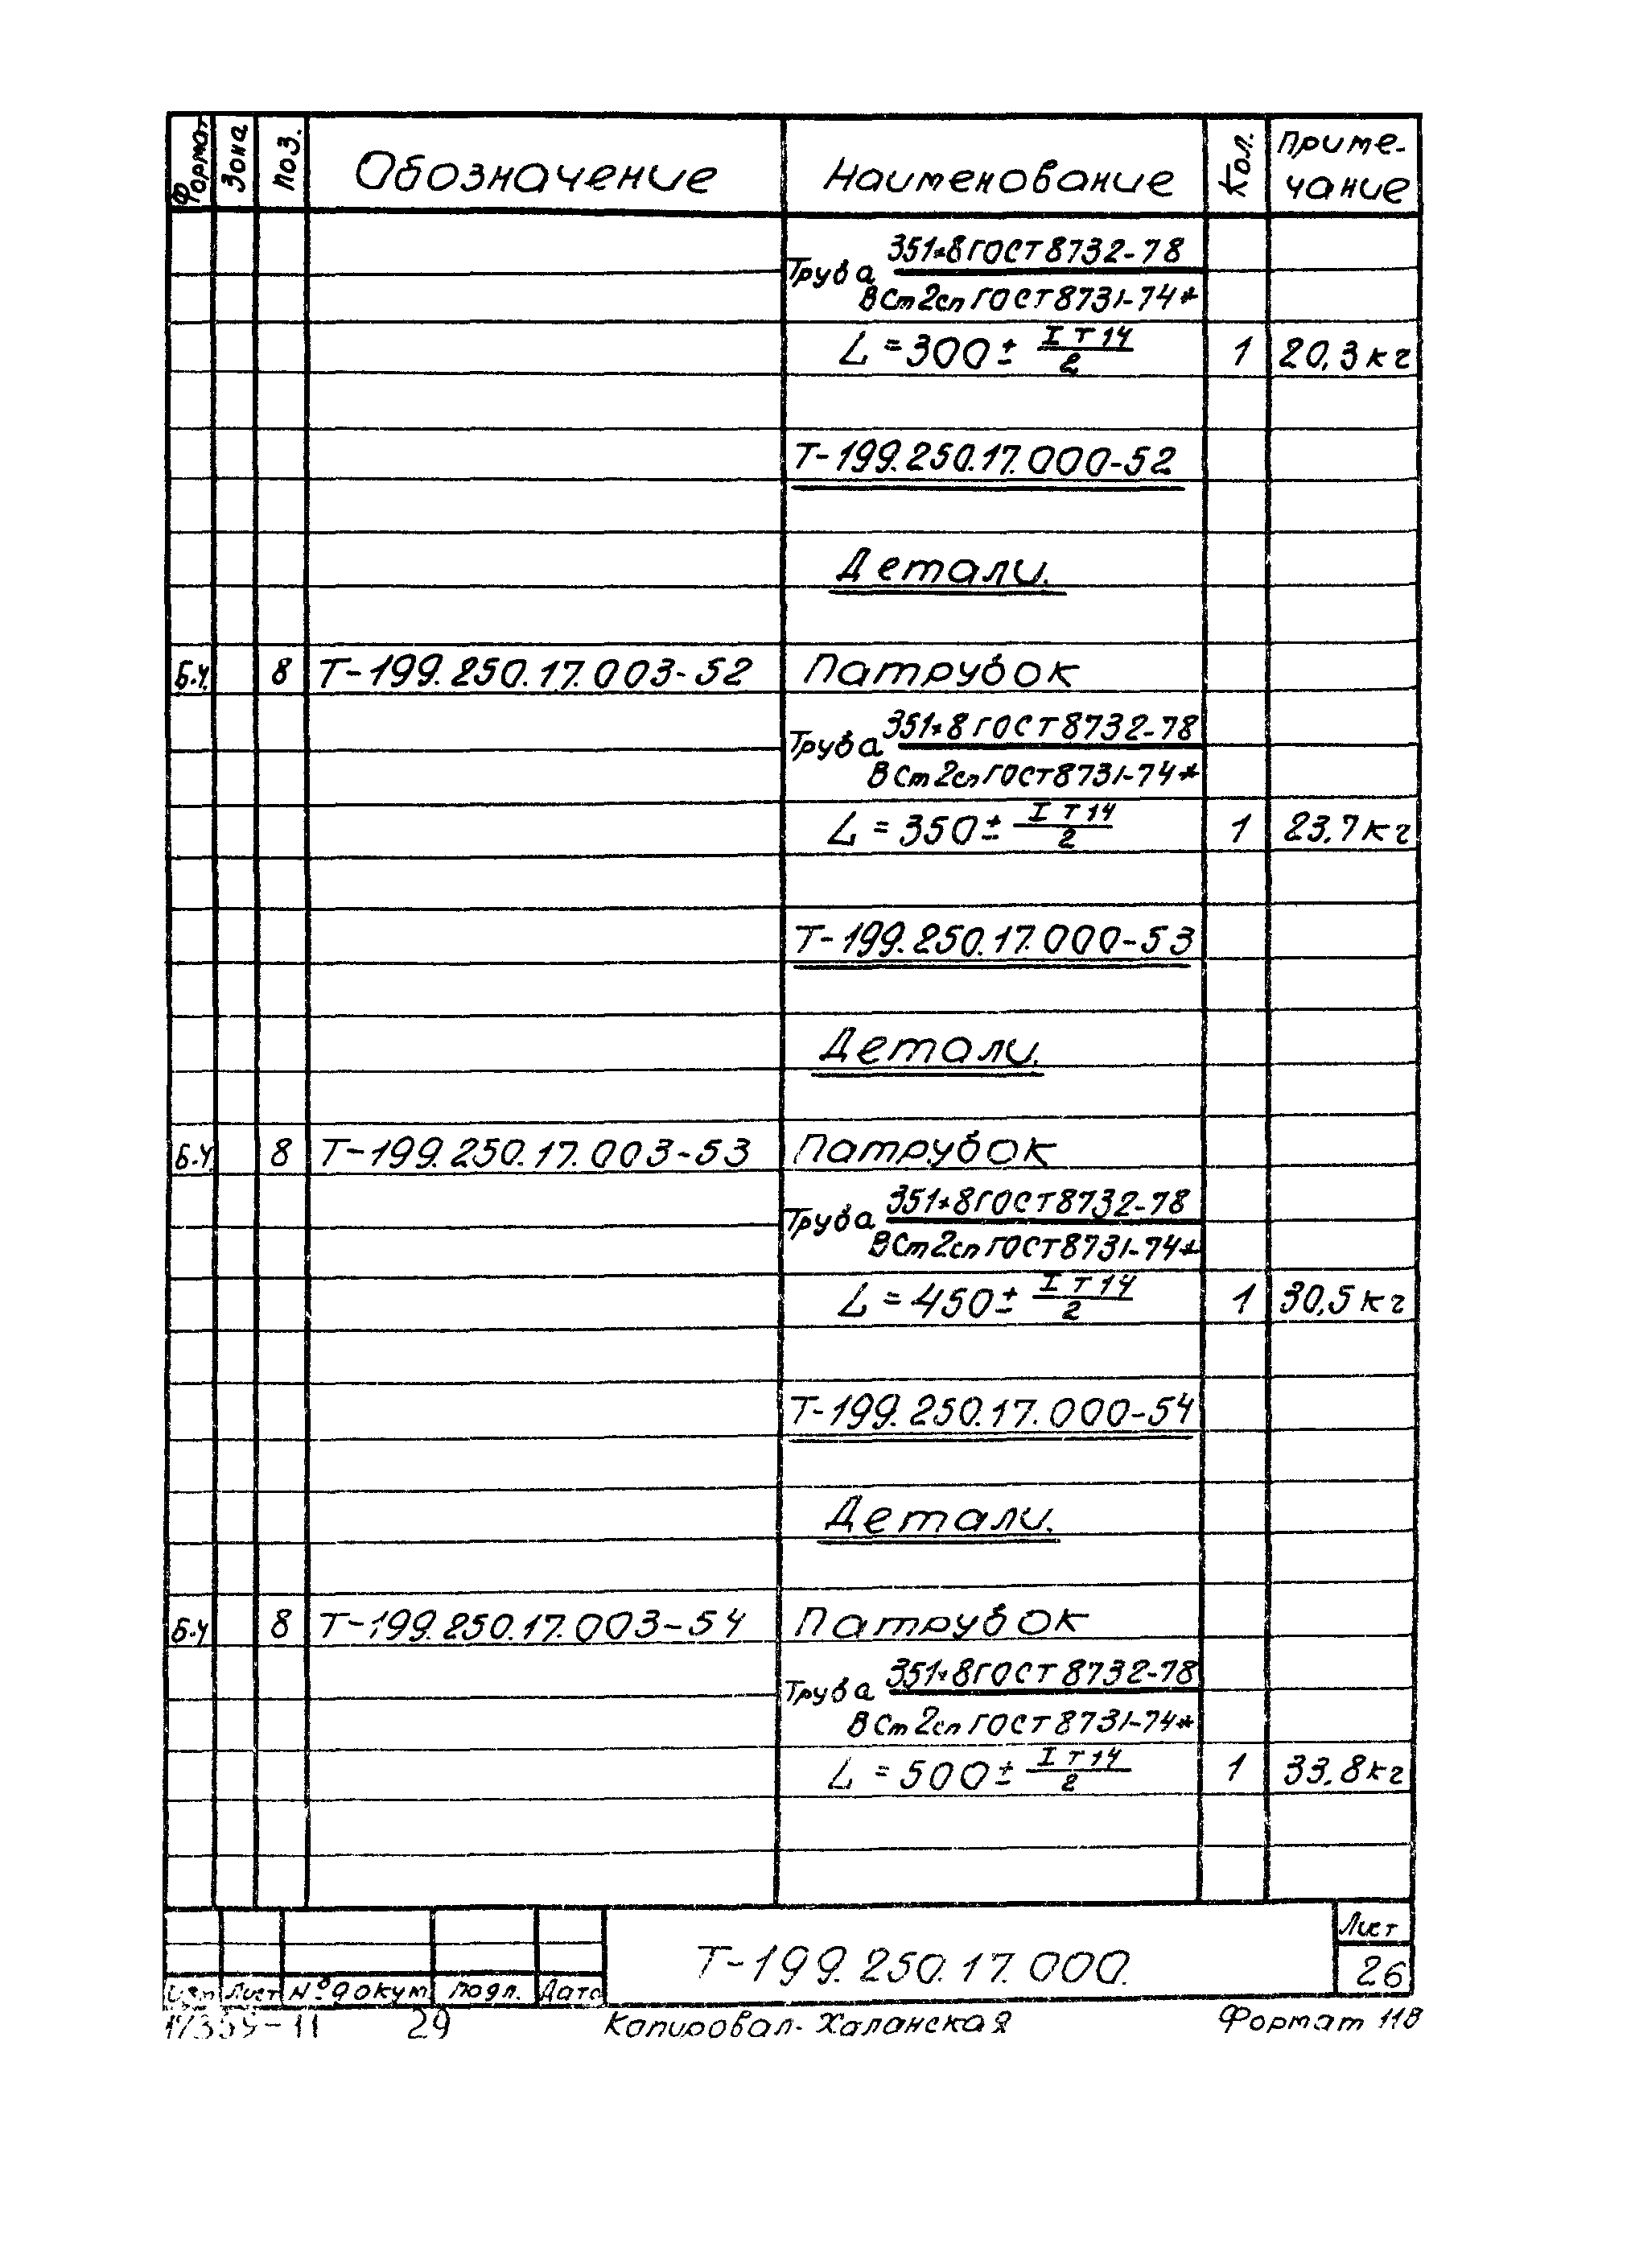 Формат Зона Поз. Обозначение Наименование Кол. Приме-
чание
Труба 351*8 ГОСТ 8732-78
ВСт2сп ГОСТ 8731-74*
L = 300 ± IT14/2 1 20,3 кг
Т-199.250.17.000-52
Детали.
Б.Ч. 8 Т-199.250.17.003-52 Патрубок
Труба 351*8 ГОСТ 8732-78
ВСт2сп ГОСТ 8731-74*
L = 350 ± IT14/2 1 23.7 кг
Т-199.250.17.000-53
Детали.
Б.Ч. 8 Т-199.250.17.003-53 Патрубок
Труба 351*8 ГОСТ 8732-78
ВСт2сп ГОСТ 8731-74*
L = 450 ± IT14/2 1 30,5 кг
Т-199.250.17.000-54
Детали.
Б.Ч 8 Т-199.250.17.003-54 Патрубок
Труба 351*8 ГОСТ 8732-78
ВСт2сп ГОСТ 8731-74*
L = 500 ± IT14/2 1 33.8 кг
Лист
Т-199.250.17.000.
26
Изм Лист № докум Подп. Дата
17359-11 29 Копировал- Халанская Формат 11В